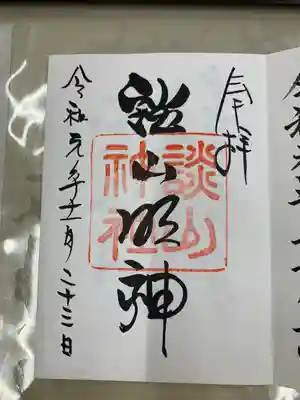 奉拝
談山明神
談山神社
令和元年十一月二十三日